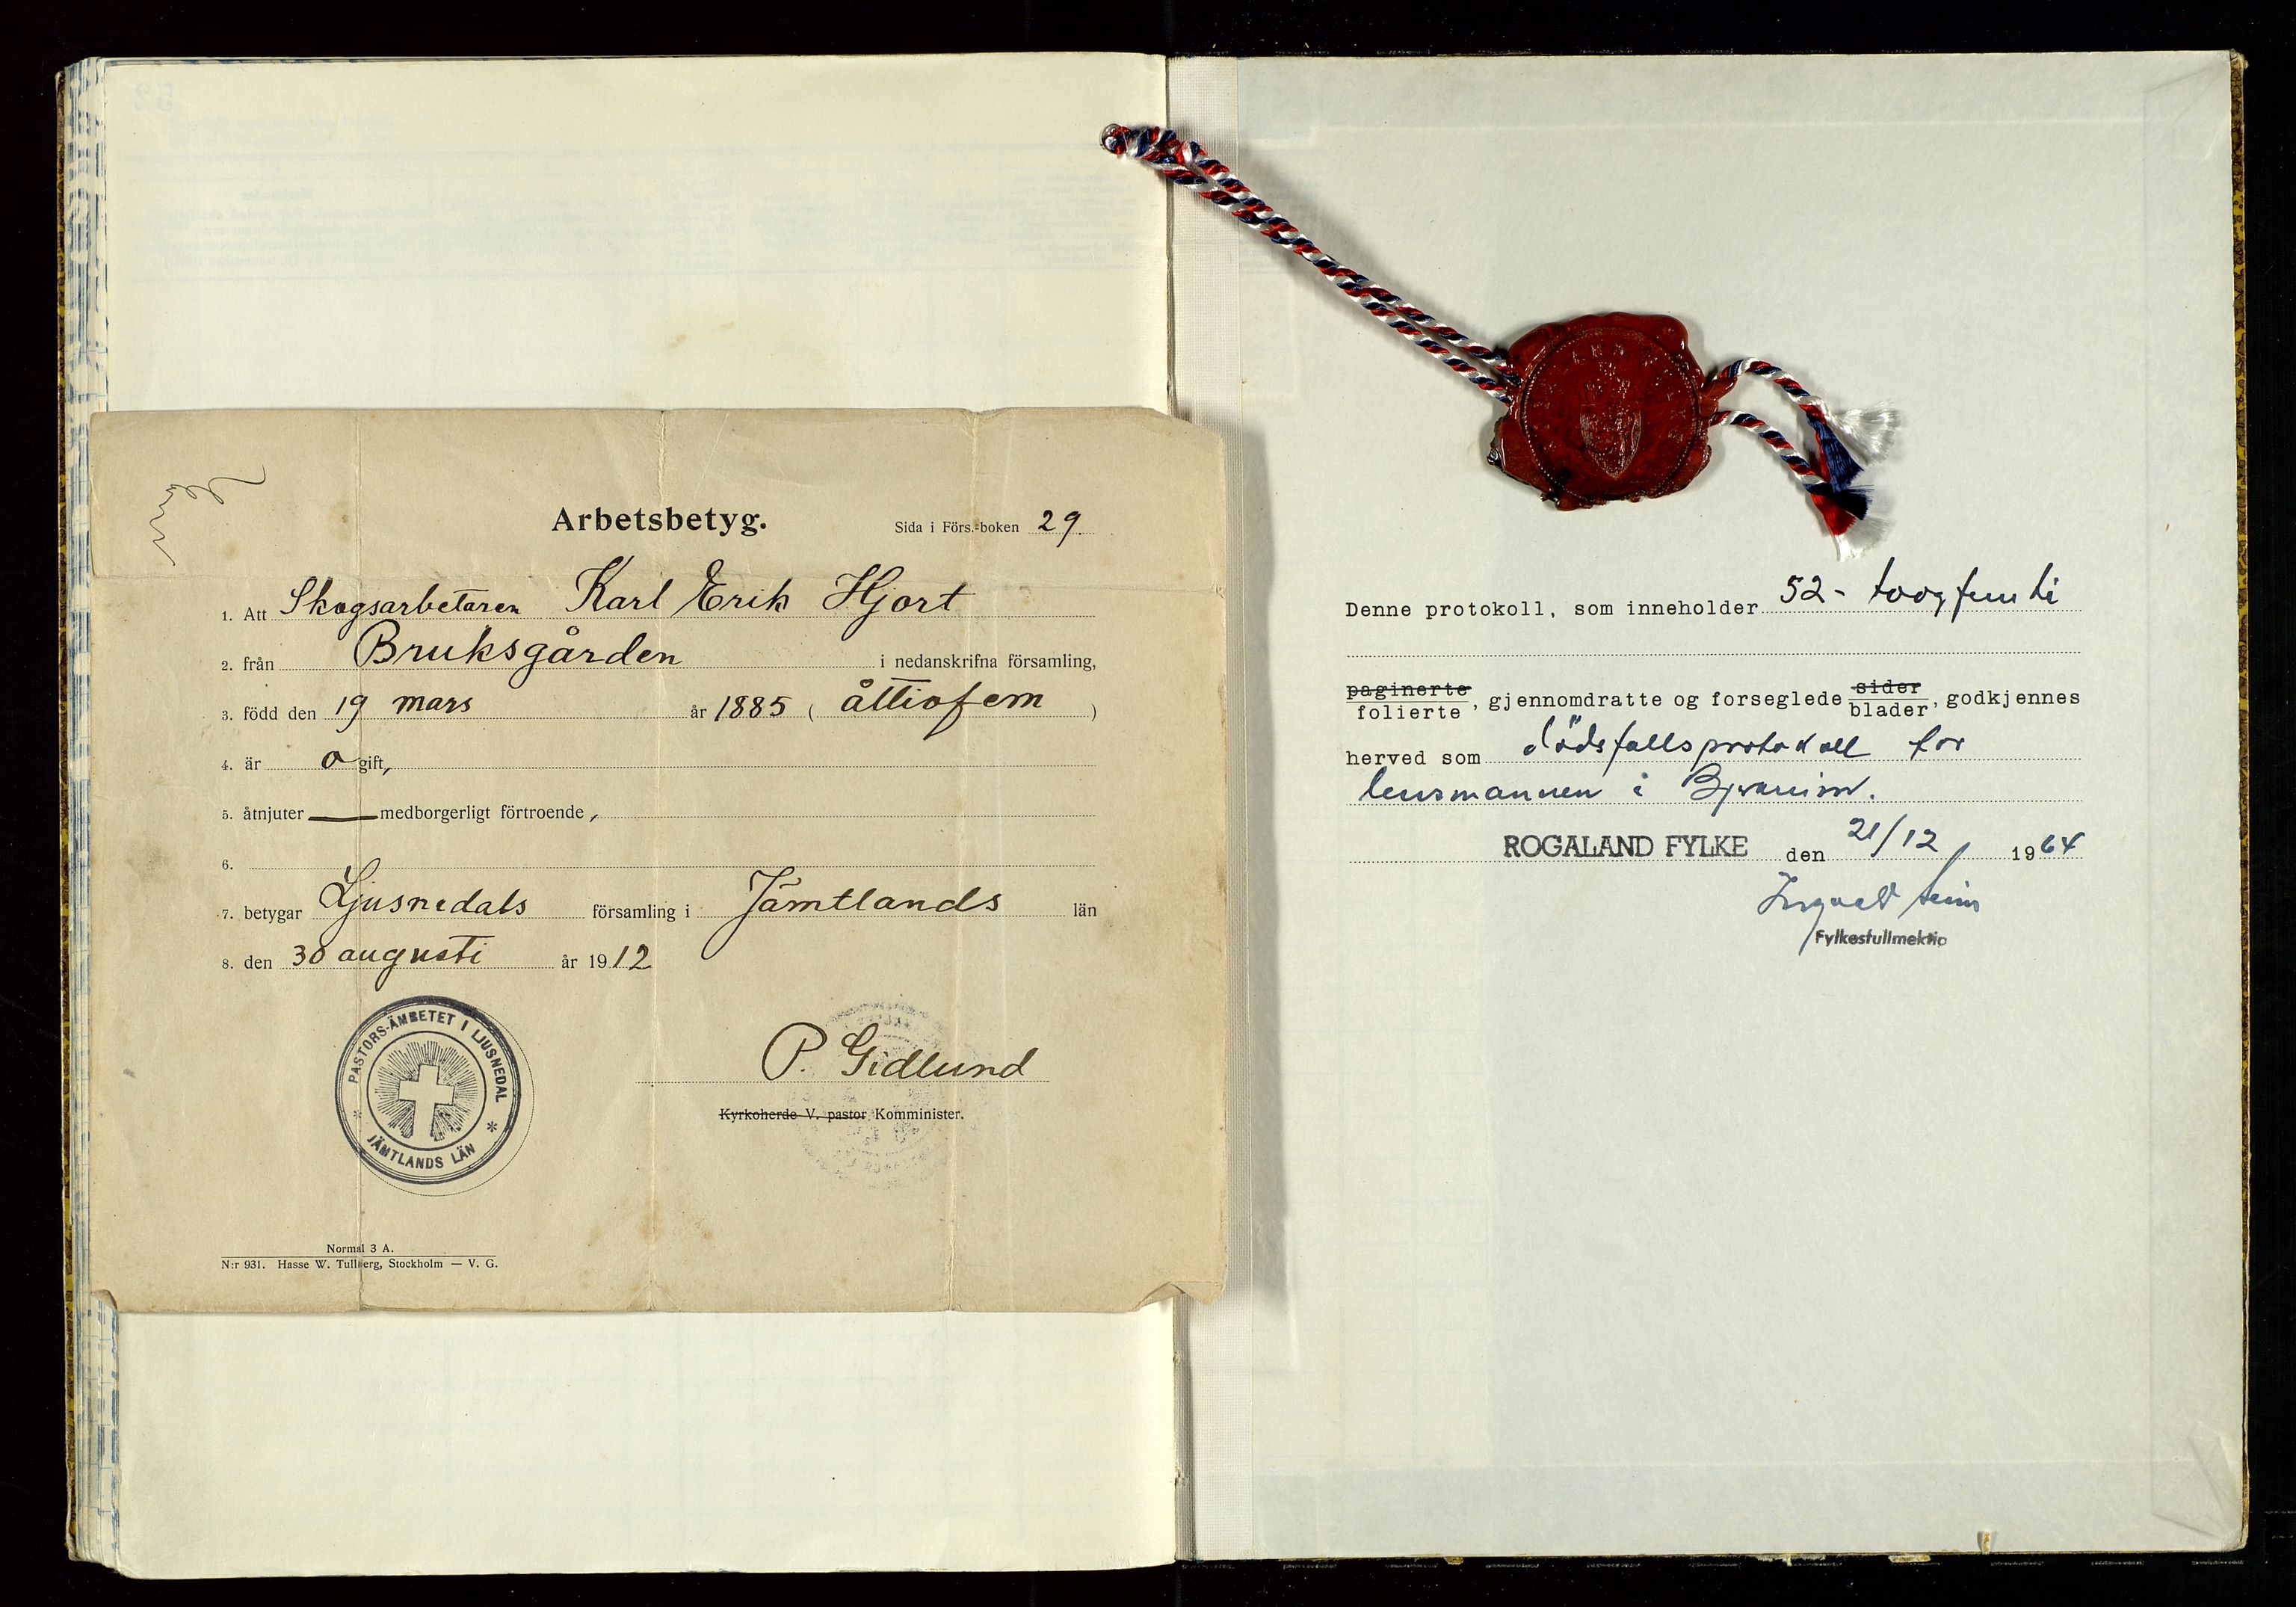 Arbetsbetyg.
Sida i Förs.-boken 29.
1. Att Skogsarbetaren Karl Erik Hjort
2. från Bruksgården i nedanskrifna församling,
3. född den 19 mars år 1885 ( åttiofem )
4. är o gift,
5. åtnjuter — medborgerligt förtroende,
6.
7. betygar Ljusnedals församling i Jämtlands län
8. den 30 augusti år 1912
PASTORS-ÄMBETET I LJUSNEDAL
* JÄMTLANDS LÄN *
P. Gidlund
Kyrkoherde V. pastor Komminister.
Normal 3 A.
N:r 931. Hasse W. Tullberg, Stockholm — V. G.
Denne protokoll, som inneholder 52 - toogfemti
paginerte
folierte, gjennomdratte og forseglede sider
blader, godkjennes
herved som dödsfallsprotokoll for
lensmannen i Bjerreim.
ROGALAND FYLKE den 21/12 1964
Fylkesfullmektig